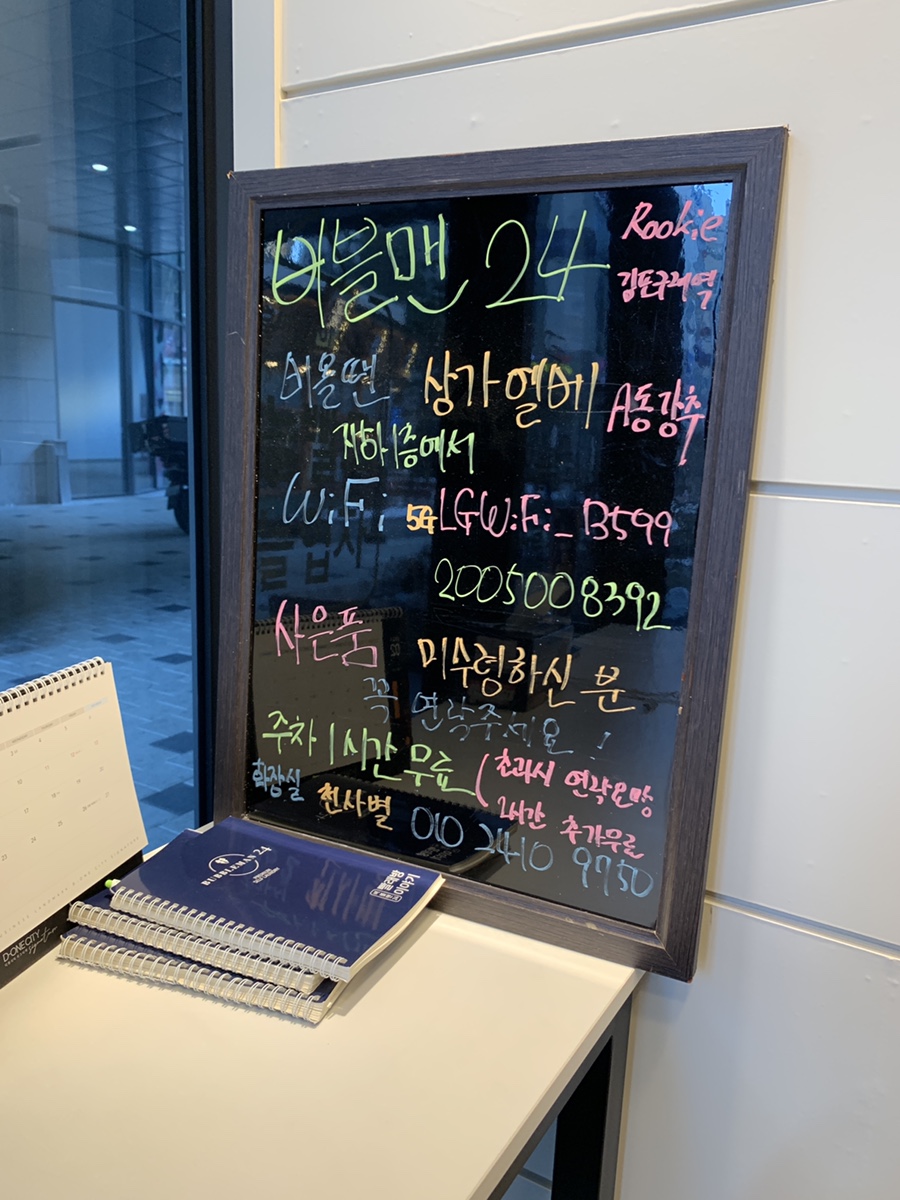 버블맨 24
Rookie
김포구래역
버올땐 상가엘베 A동강추!
지하1층에서
WiFi 5G LGWiFi_B599
2005008392
사은품 미수령하신 분
꼭 연락주세요!
주차 1시간 무료 (초과시 연락요망
2시간 추가무료
화장실 천사별 010 2410 9750
BUBBLEMAN 24
D·ONECITY
signature